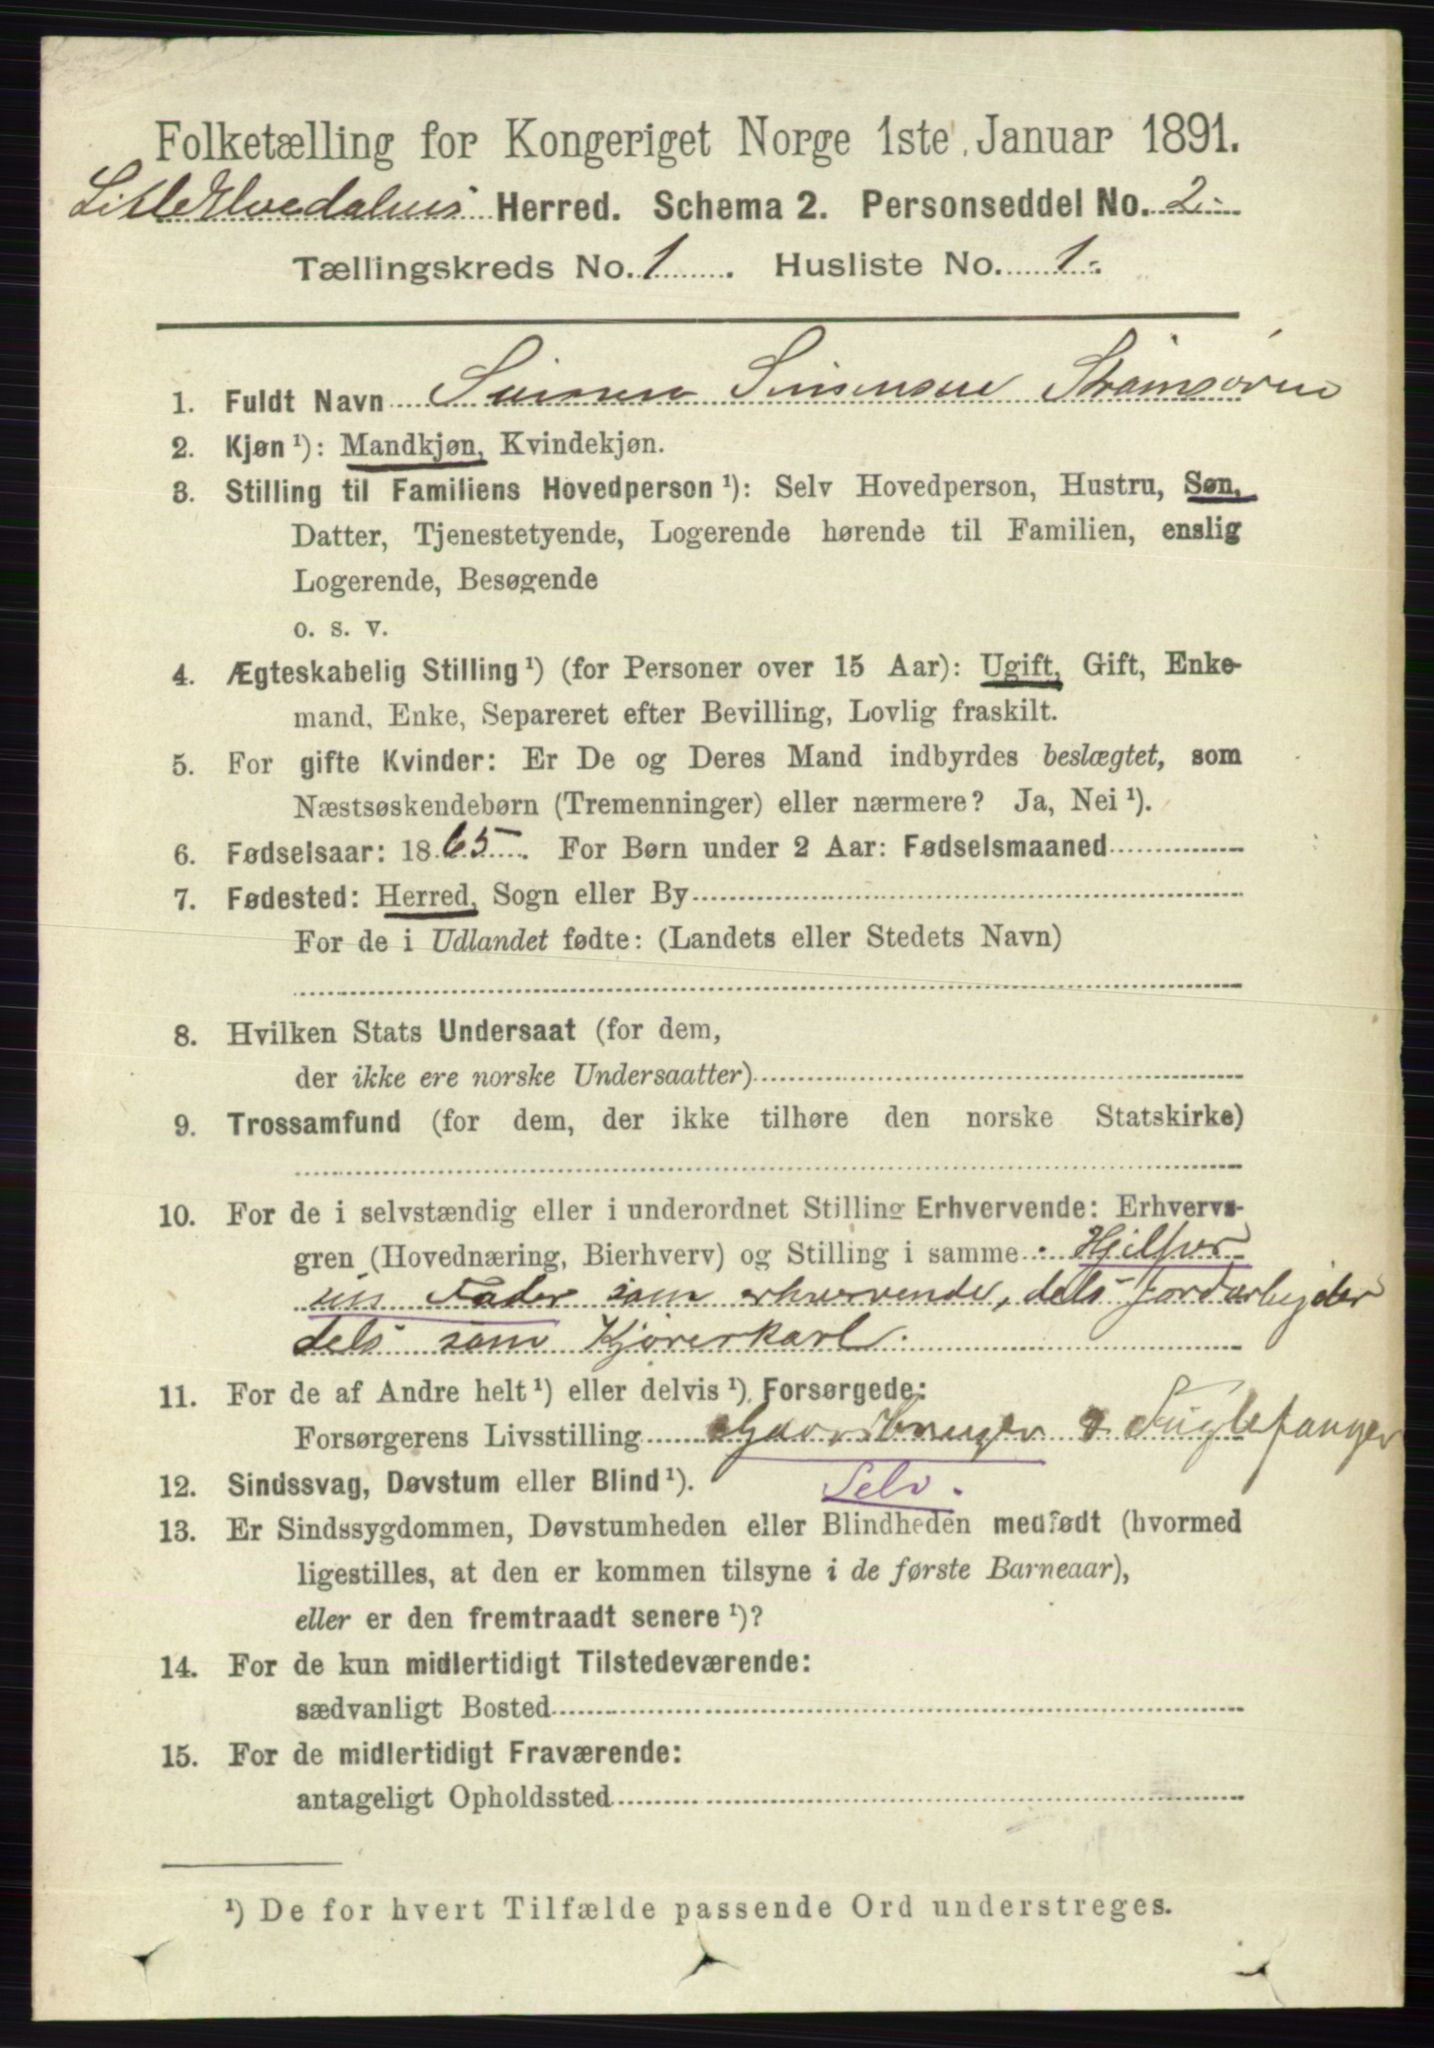 Folketælling for Kongeriget Norge 1ste Januar 1891.
Lille Elvedalens Herred. Schema 2. Personseddel No. 2.
Tællingskreds No. 1. Husliste No. 1.
1. Fuldt Navn Simen Simensen Strømsøren
2. Kjøn ¹): Mandkjøn, Kvindekjøn.
3. Stilling til Familiens Hovedperson ¹): Selv Hovedperson, Hustru, Søn,
Datter, Tjenestetyende, Logerende hørende til Familien, enslig
Logerende, Besøgende
o. s. v.
4. Ægteskabelig Stilling ¹) (for Personer over 15 Aar): Ugift, Gift, Enke-
mand, Enke, Separeret efter Bevilling, Lovlig fraskilt.
5. For gifte Kvinder: Er De og Deres Mand indbyrdes beslægtet, som
Næstsøskendebørn (Tremenninger) eller nærmere? Ja, Nei ¹).
6. Fødselsaar: 1865. For Børn under 2 Aar: Fødselsmaaned
7. Fødested: Herred, Sogn eller By
For de i Udlandet fødte: (Landets eller Stedets Navn)
8. Hvilken Stats Undersaat (for dem,
der ikke ere norske Undersaatter)
9. Trossamfund (for dem, der ikke tilhøre den norske Statskirke)
10. For de i selvstændig eller i underordnet Stilling Erhvervende: Erhvervs-
gren (Hovednæring, Bierhverv) og Stilling i samme Hjelper
sin Fader som erhvervende, dels Jordarbejder
dels som Kjørerkarl.
11. For de af Andre helt ¹) eller delvis ¹) Forsørgede:
Forsørgerens Livsstilling Gaardbruger & Fuglefanger
12. Sindssvag, Døvstum eller Blind ¹). Selv.
13. Er Sindssygdommen, Døvstumheden eller Blindheden medfødt (hvormed
ligestilles, at den er kommen tilsyne i de første Barneaar),
eller er den fremtraadt senere ¹)?
14. For de kun midlertidigt Tilstedeværende:
sædvanligt Bosted
15. For de midlertidigt Fraværende:
antageligt Opholdssted
¹) De for hvert Tilfælde passende Ord understreges.